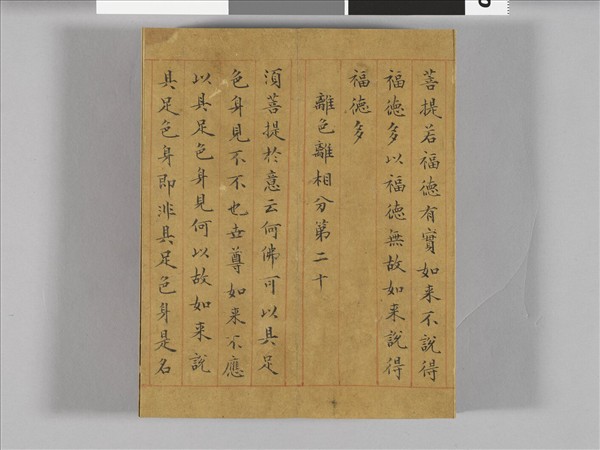 菩提若福德有實如来不說得
福德多以福德無故如来說得
福德多
離色離相分第二十
須菩提於意云何佛可以具足
色身見不不也世尊如来不應
以具足色身見何以故如来說
具足色身即非具足色身是名